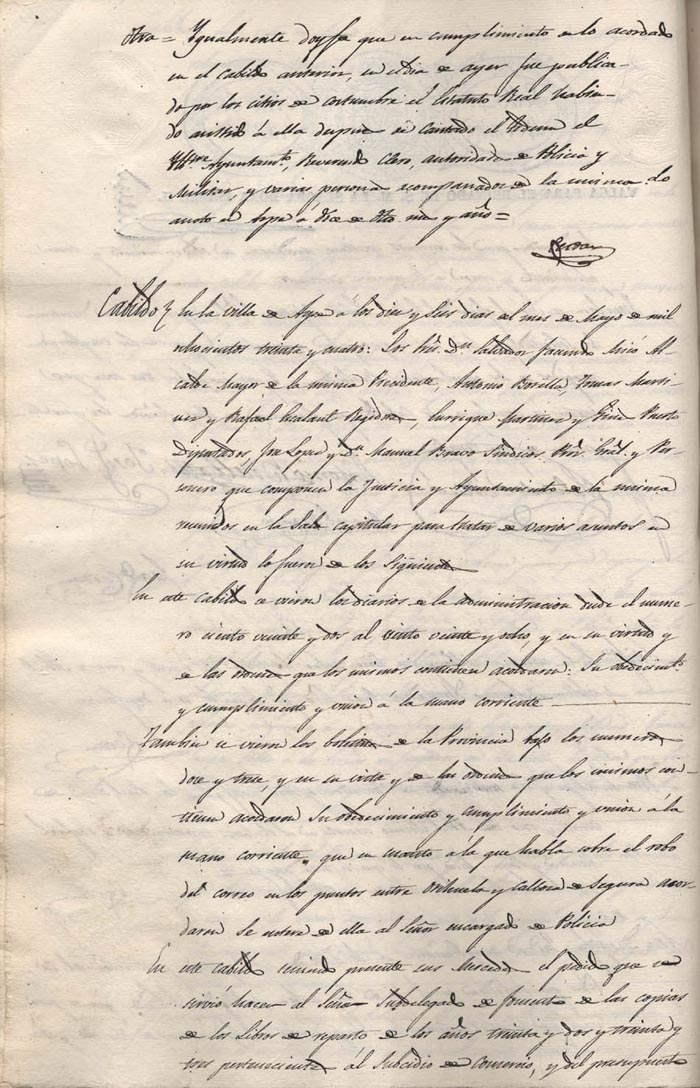 Otra = Ygualmente doy fe que en cumplimiento de lo acordado
en el cabildo anterior, en el dia de ayer fue publica-
do por los sitios de costumbre el Estatuto Real habien-
do asistido á ella despues de cantado el Tedeum el
Yltre. Ayuntamto., Reverendo Clero, autoridades de Policia y
Militar, y varias personas acompañados de la musica. Lo
anoto en Aspe á doce de dho. mes y año =
Cabildo } En la villa de Aspe á los diez y seis dias del mes de Mayo de mil
ochocientos treinta y cuatro: Los Sres. Dn. Salvador Facundo Miró Al-
calde Mayor de la misma Presidente, Antonio Botella, Tomas
y Rafael Regidores, Enrique Martinez y Gines Puerto
Diputados, Jose Lopez y Dn. Manuel Bravo Sindicos Pror. Gral. y Per-
sonero que componen la Justicia y Ayuntamiento de la misma
reunidos en la Sala capitular para tratar de varios asuntos en
su virtud lo fueron de los siguientes
En este cabildo se vieron los diarios de la administracion desde el nume-
ro ciento veinte y dos al ciento veinte y ocho, y en su virtud y
de las ordenes que los mismos contienen acordaron: Su obedecimto.
y cumplimiento y union á la mano corriente
Tambien se vieron los boletines de la Provincia bajo los numeros
doce y trece, y en su vista y de las ordenes que los mismos con-
tienen acordaron su obedecimiento y cumplimiento y union á la
mano corriente, que en cuanto á la que habla sobre el robo
del correo en los puntos entre Orihuela y Callosa de Segura acor-
daron se entere de ella al Señor encargado de Policia
En este cabildo teniendo presente sus Mercedes el pedido que se
sirvió hacer al Señor Subdelegado de fomento de las copias
de los Libros de reparto de los años treinta y dos y treinta y
tres perteneciente al Subsidio de Comercio, y del presupuesto